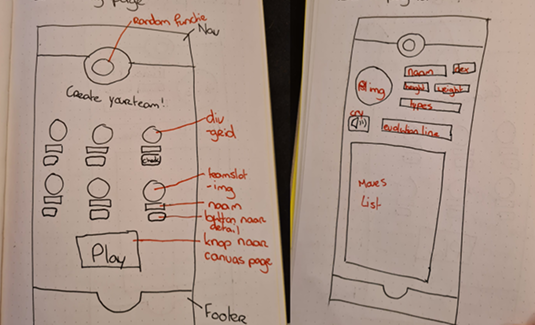 page
random functie
Nav
Create your team!
div
-grid
teamslot
-img
naam
button naar
detail
knop naar
canvas page
Play
Footer
img
naam
dex
height
weight
types
cry
evolution line
Moves
List